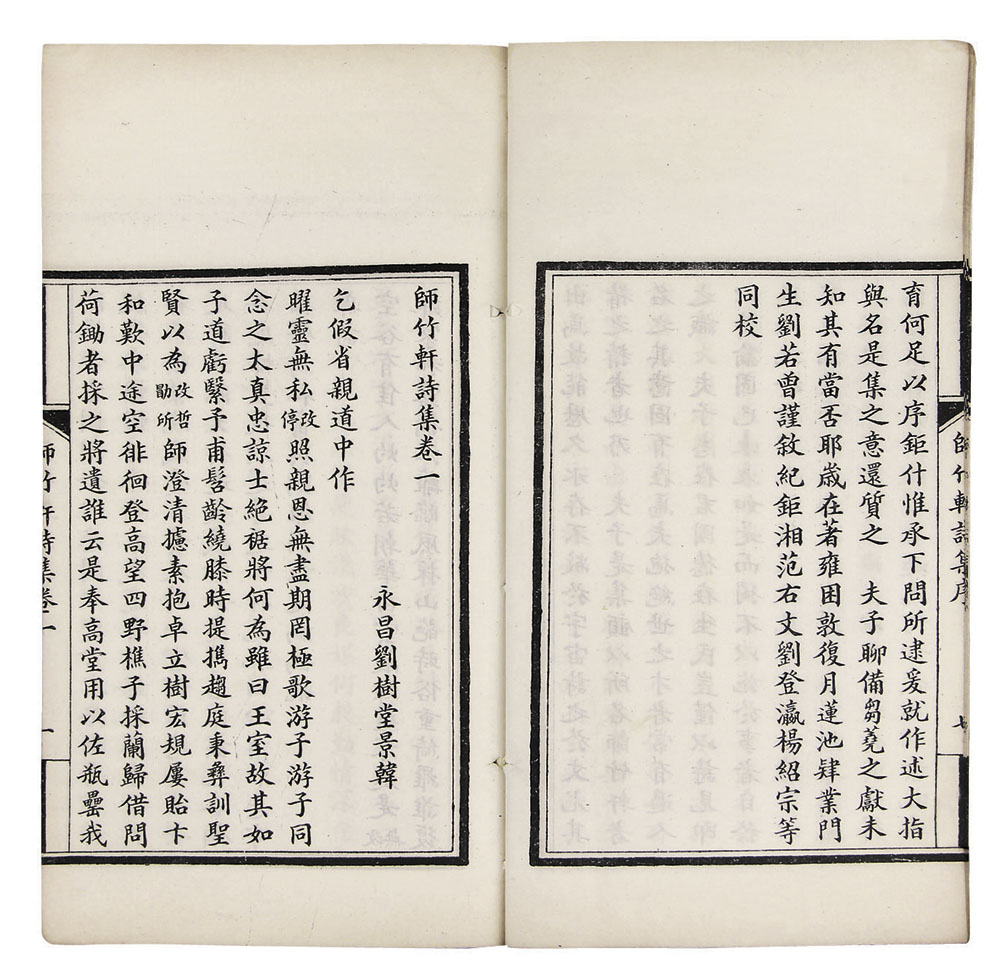 師竹軒詩集序
七
育何足以序鉅什惟承下問所逮爰就作述大指
與名是集之意還質之　夫子聊備芻蕘之獻未
知其有當否耶歲在著雍困敦復月蓮池肄業門
生劉若曾謹敘紀鉅湘范右文劉登瀛楊紹宗等
同校
師竹軒詩集卷一
永昌劉樹堂景韓
乞假省親道中作
曜靈無私改停照親恩無盡期罔極歌游子游子同
念之太真忠諒士絕裾將何為雖曰王室故其如
子道虧繄予甫髫齡繞膝時提攜趨庭秉彝訓聖
賢以為改哲勖所師澄清攄素抱卓立樹宏規屢貽卞
和歎中途空徘徊登高望四野樵子採蘭歸借問
荷鋤者採之將遺誰云是奉高堂用以佐瓶罍我
師竹軒詩集卷一
一